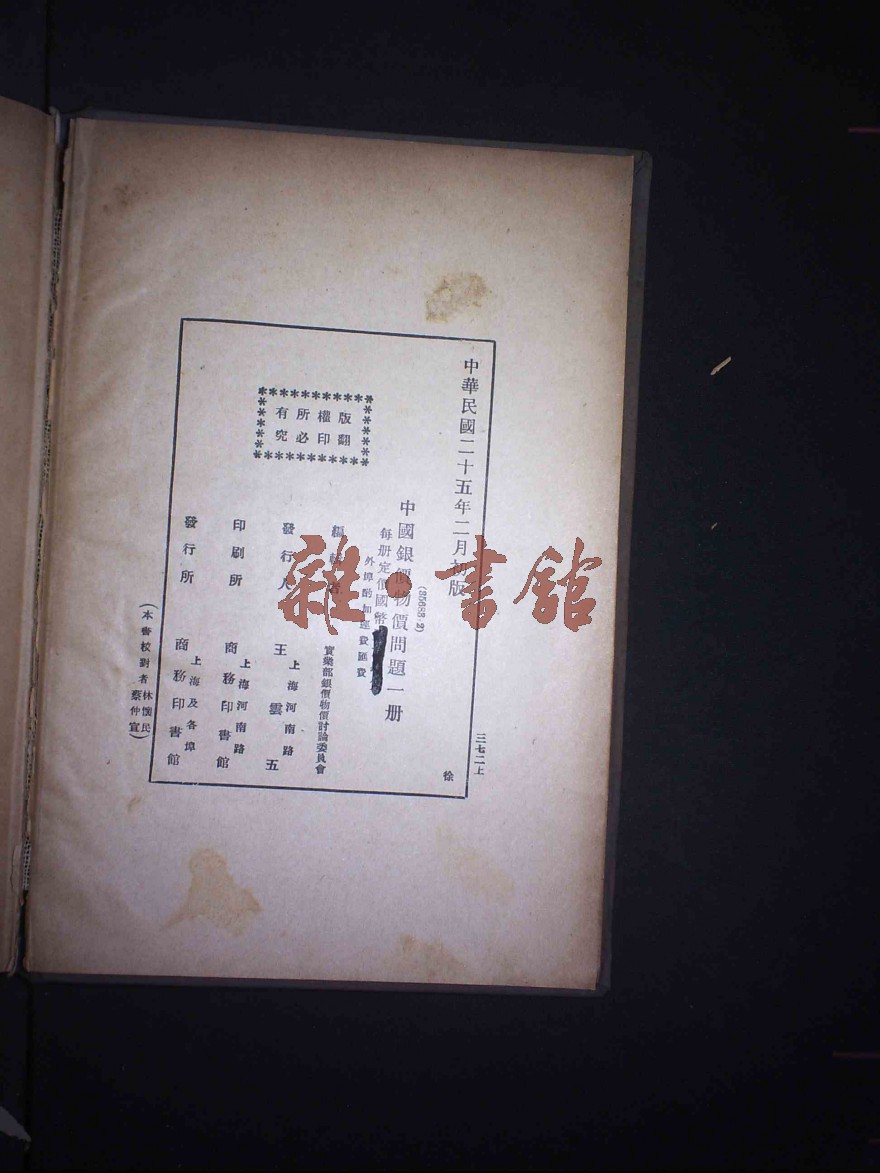 中華民國二十五年二月初版
三七二上
徐
(35683·2)
中國銀價物價問題一册
每册定價國幣
外埠酌加運費匯費
版權所有
翻印必究
實業部銀價物價討論委員會
發行人
王雲五
上海河南路
印刷所
商務印書館
上海河南路
發行所
商務印書館
上海及各埠
(本書校對者林懷民
蔡仲宣)
雜·書館